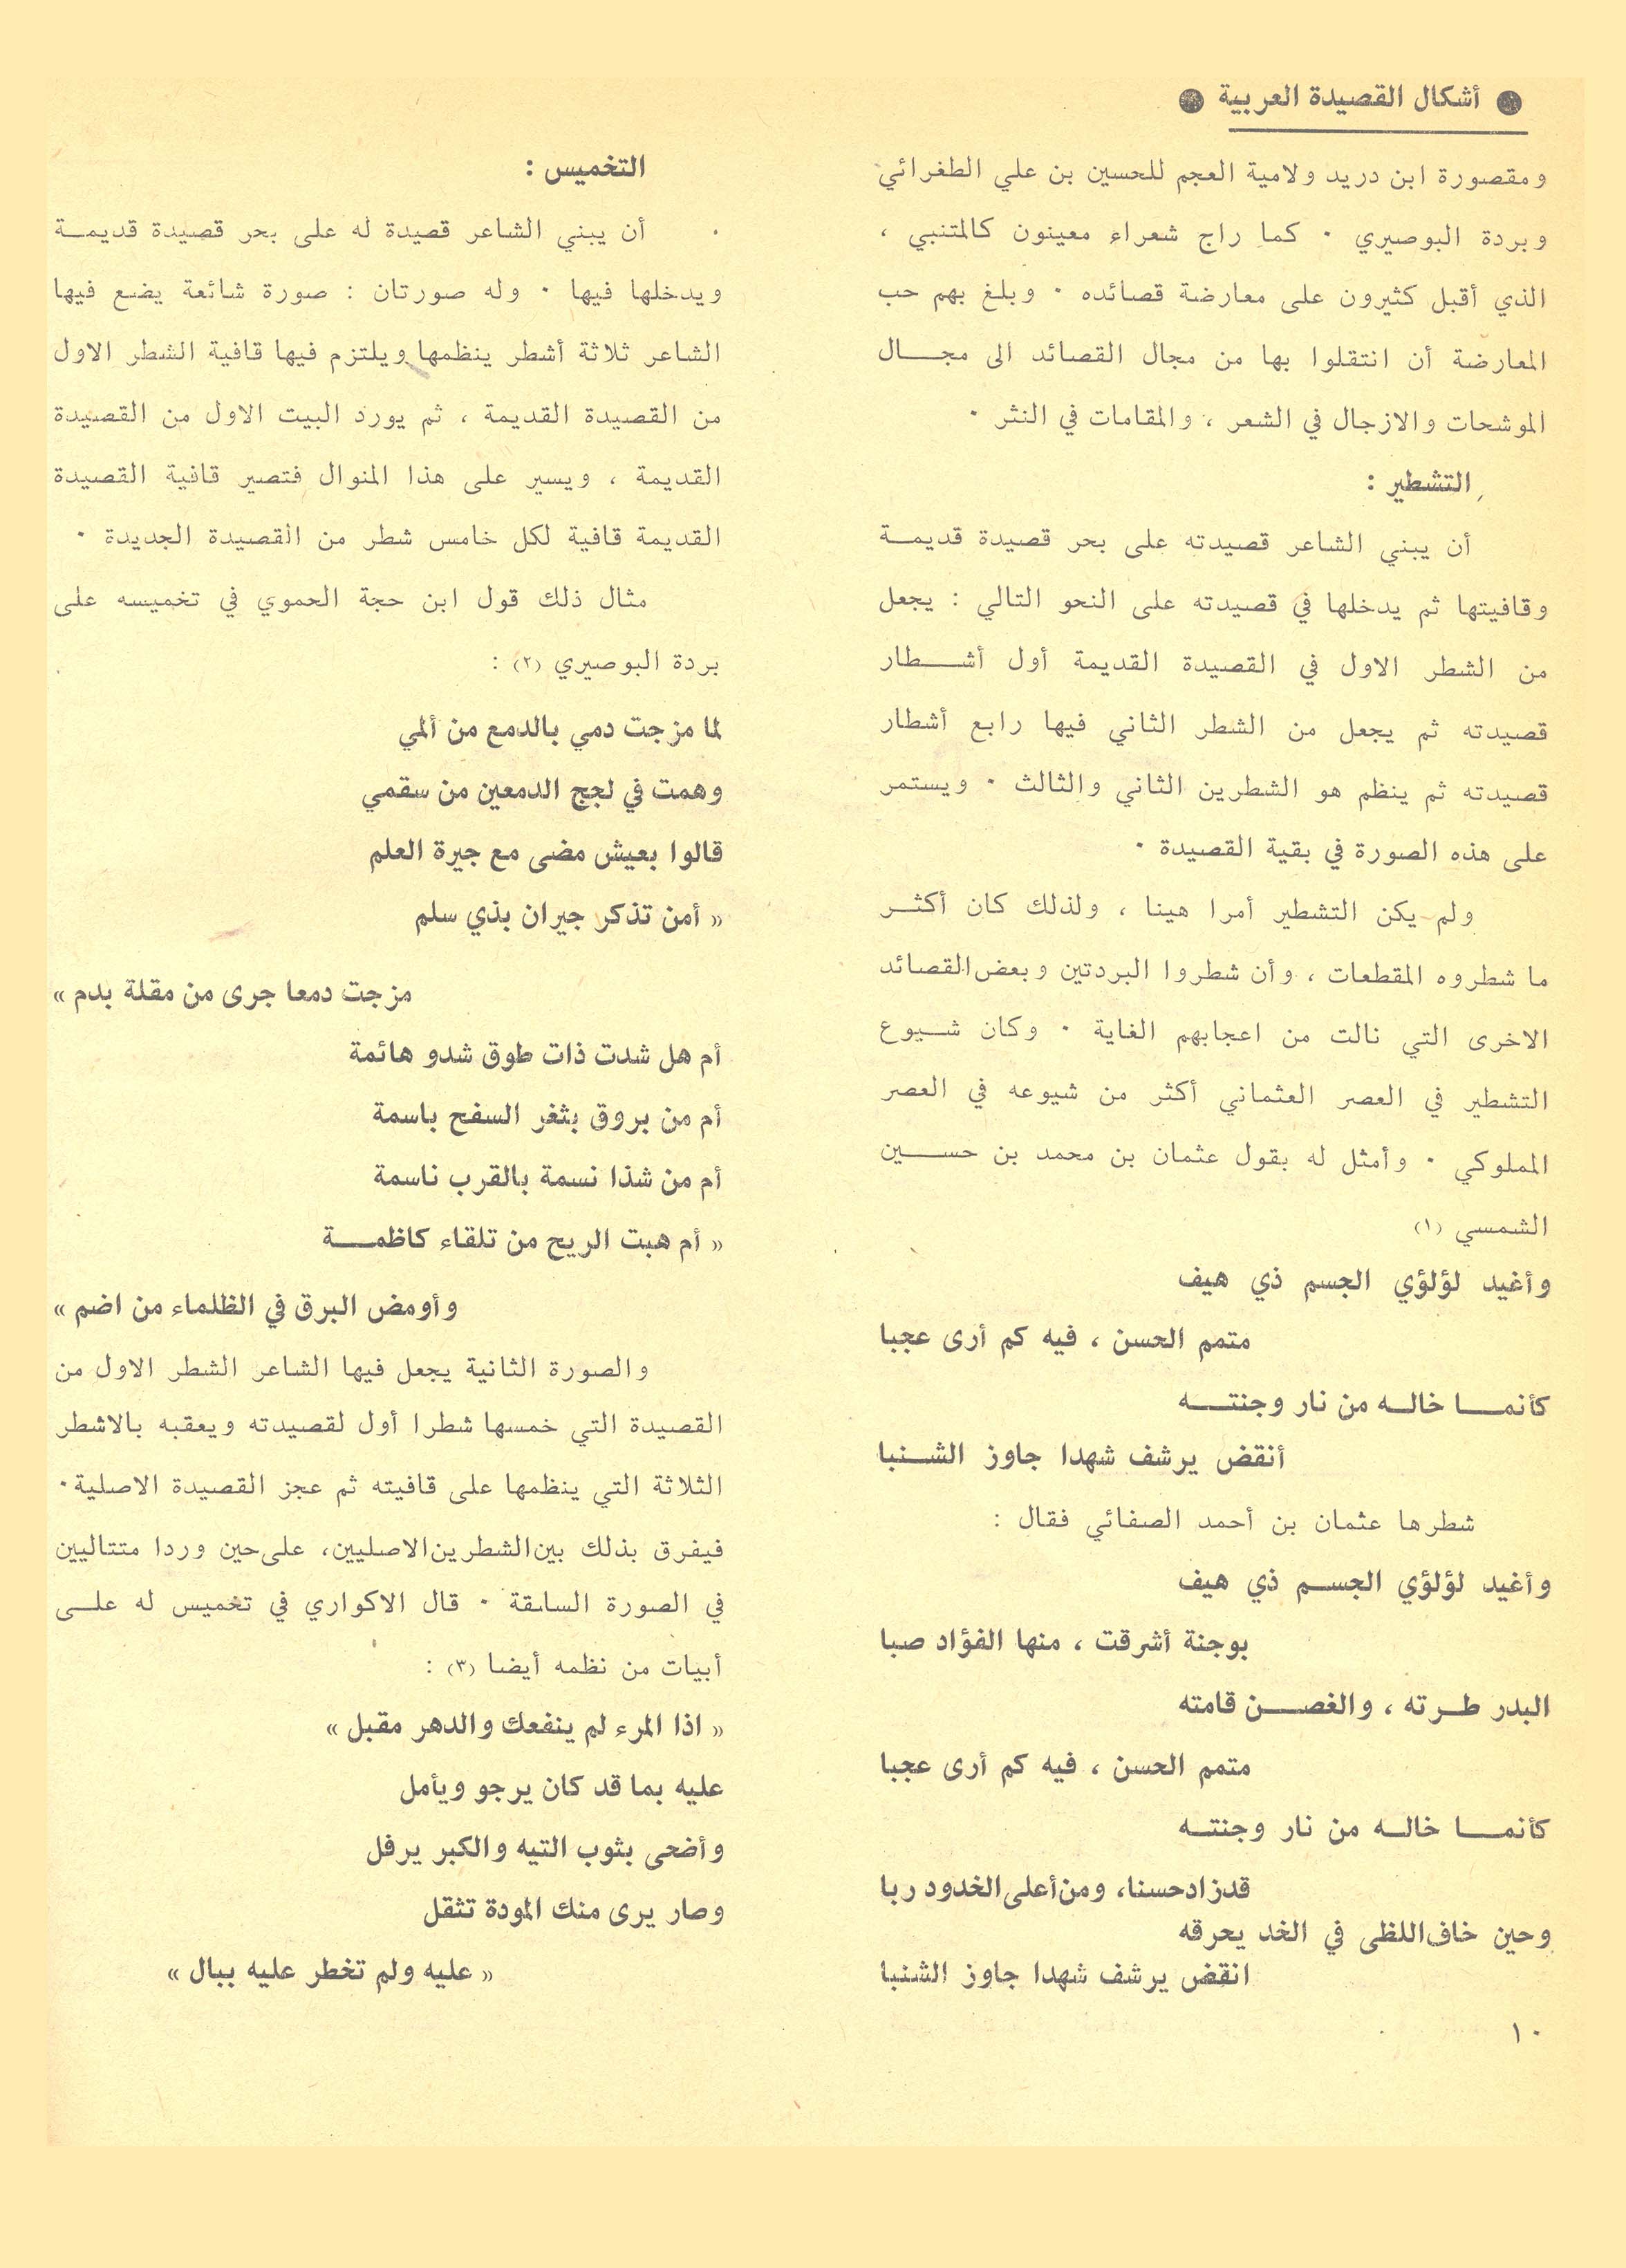 ● أشكال القصيدة العربية ●
ومقصورة ابن دريد ولامية العجم للحسين بن علي الطغرائي
وبردة البوصيري ٠ كما راج شعراء معينون كالمتنبي ،
الذي أقبل كثيرون على معارضة قصائده ٠ وبلغ بهم حب
المعارضة أن انتقلوا بها من مجال القصائد الى مجــال
الموشحات والازجال في الشعر ، والمقامات في النثر ٠
التشطير :
أن يبني الشاعر قصيدته على بحر قصيدة قديمــة
وقافيتها ثم يدخلها في قصيدته على النحو التالي : يجعل
من الشطر الاول في القصيدة القديمة أول أشــطار
قصيدته ثم يجعل من الشطر الثاني فيها رابع أشطار
قصيدته ثم ينظم هو الشطرين الثاني والثالث ٠ ويستمر
على هذه الصورة في بقية القصيدة ٠
ولم يكن التشطير أمرا هينا ، ولذلك كان أكثــر
ما شطروه المقطعات ، وأن شطروا البردتين وبعض القصائد
الاخرى التي نالت من اعجابهم الغاية ٠ وكان شــيوع
التشطير في العصر العثماني أكثر من شيوعه في العصر
المملوكي ٠ وأمثل له بقول عثمان بن محمد بن حســين
الشمسي (١)
وأغيد لؤلؤي الجسم ذي هيف
متمم الحسن ، فيه كم أرى عجبا
كأنمــا خالــه من نار وجنتــه
أنقض يرشف شهدا جاوز الشــنبا
شطرها عثمان بن أحمد الصفائي فقال :
وأغيد لؤلؤي الجســم ذي هيف
بوجنة أشرقت ، منها الفؤاد صبا
البدر طــرته ، والغصــن قامته
متمم الحسن ، فيه كم أرى عجبا
كأنمــا خالــه من نار وجنتــه
قدزاد حسنا، ومن أعلى الخدود ربا
وحين خاف اللظى في الخد يحرقه
انقض يرشف شهدا جاوز الشنبا
١٠
التخميس :
أن يبني الشاعر قصيدة له على بحر قصيدة قديمــة
ويدخلها فيها ٠ وله صورتان : صورة شائعة يضع فيها
الشاعر ثلاثة أشطر ينظمها ويلتزم فيها قافية الشطر الاول
من القصيدة القديمة ، ثم يورد البيت الاول من القصيدة
القديمة ، ويسير على هذا المنوال فتصير قافية القصيدة
القديمة قافية لكل خامس شطر من القصيدة الجديدة ٠
مثال ذلك قول ابن حجة الحموي في تخميسه على
بردة البوصيري (٢) :
لما مزجت دمي بالدمع من ألمي
وهمت في لجج الدمعين من سقمي
قالوا بعيش مضى مع جيرة العلم
« أمن تذكر جيران بذي سلم
مزجت دمعا جرى من مقلة بدم »
أم هل شدت ذات طوق شدو هائمة
أم من بروق بثغر السفح باسمة
أم من شذا نسمة بالقرب ناسمة
« أم هبت الريح من تلقاء كاظمــة
وأومض البرق في الظلماء من اضم »
والصورة الثانية يجعل فيها الشاعر الشطر الاول من
القصيدة التي خمسها شطرا أول لقصيدته ويعقبه بالاشطر
الثلاثة التي ينظمها على قافيته ثم عجز القصيدة الاصلية٠
فيفرق بذلك بين الشطرين الاصليين، على حين وردا متتاليين
في الصورة السابقة ٠ قال الاكواري في تخميس له علــى
أبيات من نظمه أيضا (٣) :
« اذا المرء لم ينفعك والدهر مقبل »
عليه بما قد كان يرجو ويأمل
وأضحى بثوب التيه والكبر يرفل
وصار يرى منك المودة تثقل
« عليه ولم تخطر عليه ببال »